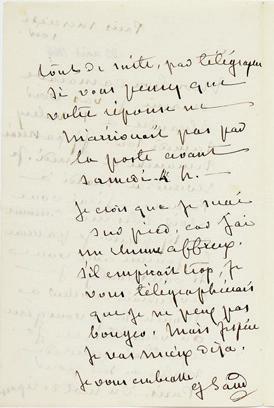 tout de suite, par télégraphe
si vous pensez que
votre réponse ne
m'arriverait pas par
la poste avant
samedi 4 h.
Je crois que je suis
sur pied, car j'ai
un rhume affreux.
S'il empirait trop, je
vous télégraphierais
que je ne peux pas
bouger. Mais j'espère
je vas mieux déjà.
Je vous embrasse
G Sand